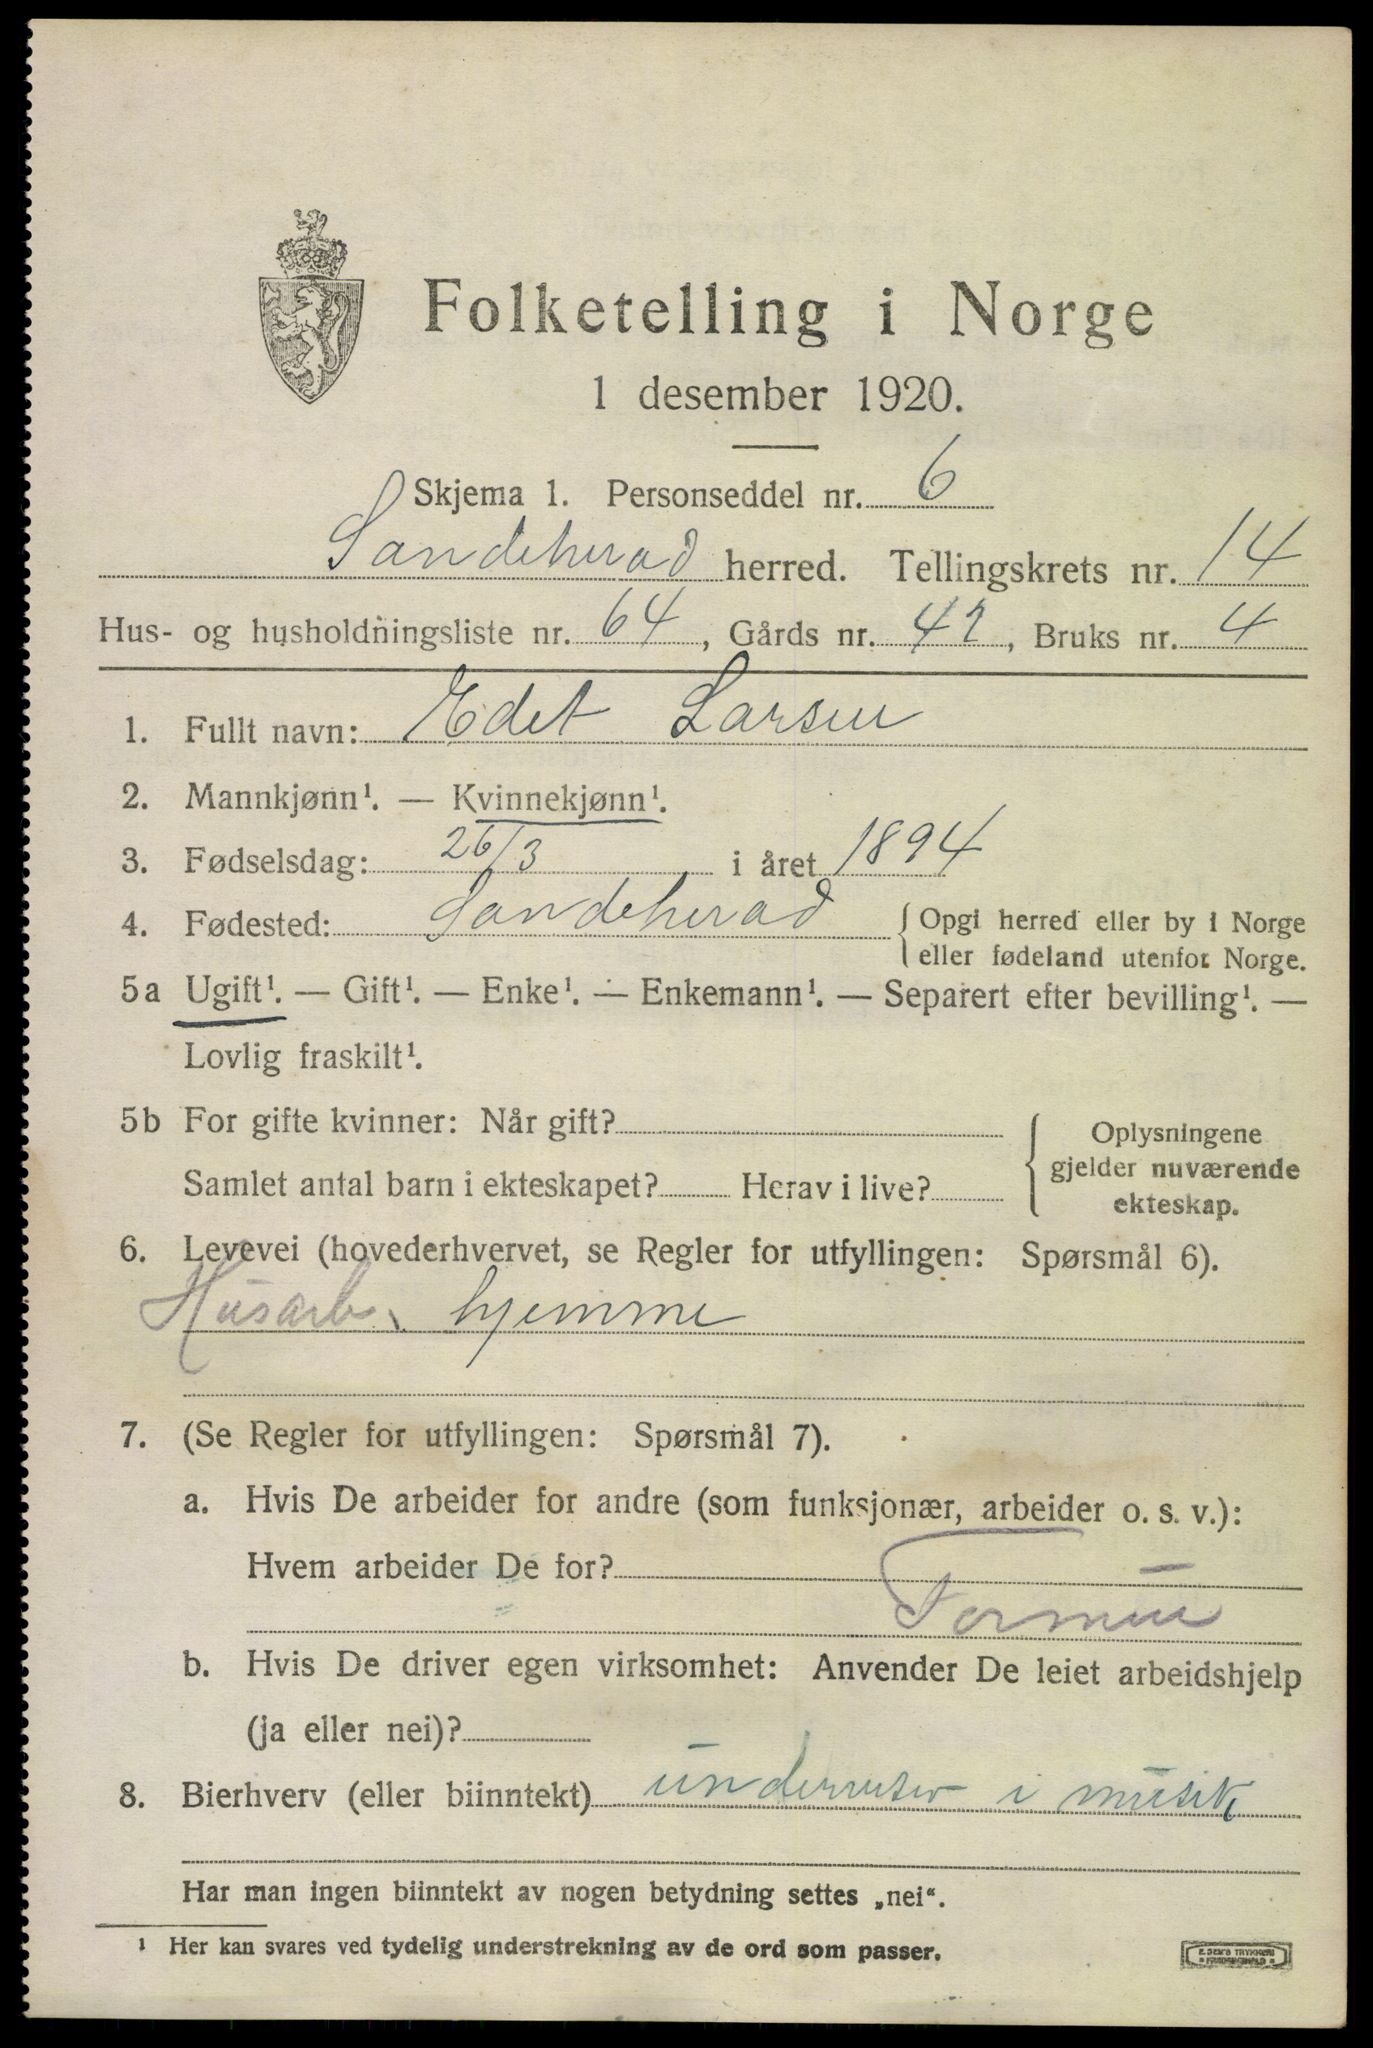 Folketelling i Norge
1 desember 1920.
Skjema 1. Personseddel nr. 6
Sandeherad herred. Tellingskrets nr. 14
Hus- og husholdningsliste nr. 64, Gårds nr. 42, Bruks nr. 4
1. Fullt navn: Edet Larsen
2. Mannkjønn¹. — Kvinnekjønn¹.
3. Fødselsdag: 26/3 i året 1894
4. Fødested: Sandeherad { Opgi herred eller by i Norge
eller fødeland utenfor Norge.
5a Ugift¹. — Gift¹. — Enke¹. — Enkemann¹. — Separert efter bevilling¹. —
Lovlig fraskilt¹.
5b For gifte kvinner: Når gift?
Samlet antal barn i ekteskapet? Herav i live?
Oplysningene
gjelder nuværende
ekteskap.
6. Levevei (hovederhvervet, se Regler for utfyllingen: Spørsmål 6).
Husarb. hjemme
7. (Se Regler for utfyllingen: Spørsmål 7).
a. Hvis De arbeider for andre (som funksjonær, arbeider o. s. v.):
Hvem arbeider De for?
b. Hvis De driver egen virksomhet: Anvender De leiet arbeidshjelp
(ja eller nei)?
8. Bierhverv (eller biinntekt) underviser i musik
Har man ingen biinntekt av nogen betydning settes „nei“.
¹ Her kan svares ved tydelig understrekning av de ord som passer.